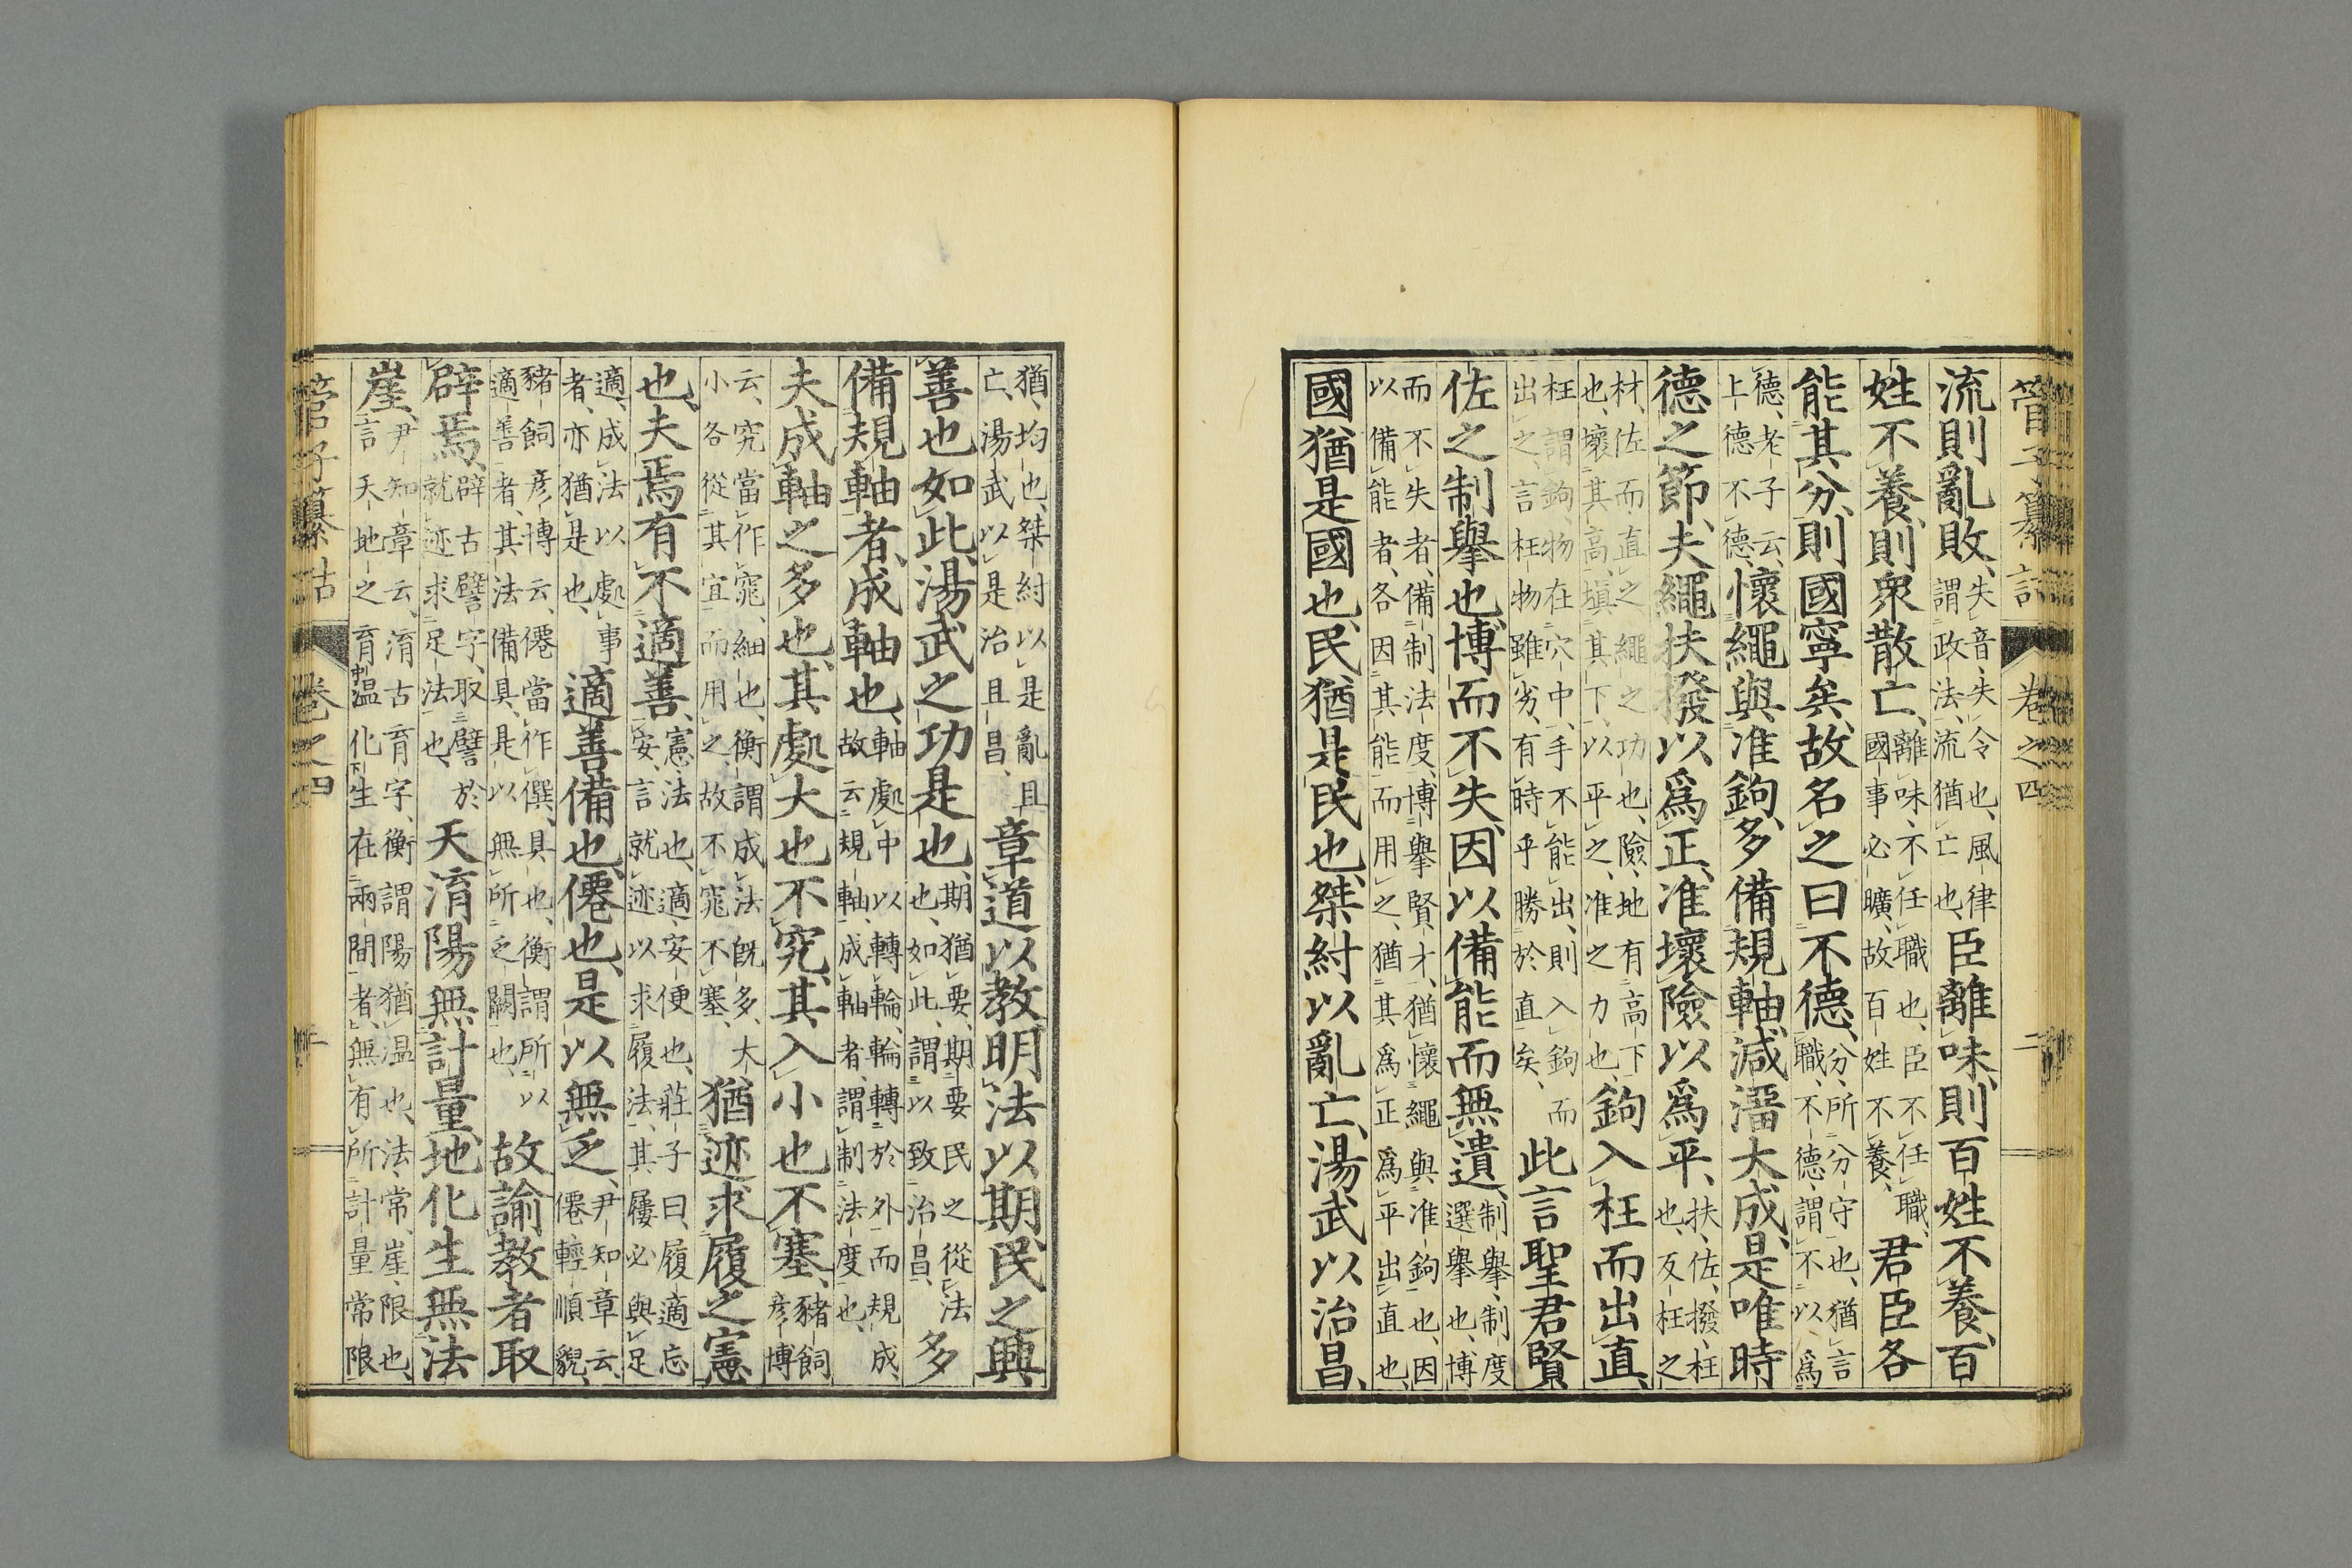 管子纂詁 卷之四 二
流則亂敗、失音、失令也、風律謂政法、流猶亡也、臣離味、則百姓不養、百
姓不養、則衆散亡、離味、不任職也、臣不任職、國事必曠、故百姓不養、君臣各
能其分、則國寧矣、故名之曰不德、分、所分守也、猶言職、不德、謂不以爲
德、老子云、上德不德、懷繩與准鉤、多備規軸、減溜大成、是唯時
德之節、夫繩扶撥以爲正、准壞險以爲平、扶、佐、撥、枉也、反枉之
材、佐而直之、繩之功也、險、地有高下也、壞其高、塡其下、以平之、准之力也、鉤入枉而出直、
枉謂鉤、物在穴中、手不能出、則入鉤而出之、言枉物雖劣、有時乎勝於直矣、此言聖君賢
佐之制舉也、博而不失、因以備能而無遺、制舉、制度選舉也、博
而不失者、備制法度、博舉賢才、猶懷繩與准鉤也、因以備能者、各因其能而用之、猶其爲正爲平出直也、
國猶是國也、民猶是民也、桀紂以亂亡、湯武以治昌、
猶、均也、桀紂以是亂且亡、湯武以是治且昌、章道以教、明法以期、民之興
善也如此、湯武之功是也、期猶要、期要民之從法也、如此、謂以致治昌、多
備規軸者、成軸也、軸處中以轉輪、輪轉於外而規成、故云規軸、成軸者、謂制法度也、
夫成軸之多也、其處大也不究、其入小也不塞、豬飼彥博
云、究當作窕、細也、衡謂成法既多、大小各從其宜而用之、故不窕不塞、猶迹求履之憲
也、夫焉有不適善、憲、法也、適、安便也、莊子曰、履適忘安、言就迹以求履法、其屨必與足
適、成法以處事者、亦猶是也、適善備也、僊也、是以無乏、尹知章云、僊、輕順貌、
豬飼彥博云、僊當作僎、具也、衡謂所以適善者、其法備具、是以無所乏闕也、故諭教者取
辟焉、辟古譬字、取譬於就迹求足法也、天淯陽、無計量、地化生、無法
崖、尹知章云、淯古育字、衡謂陽猶温也、法、常、崖、限也、言天地之育中温化下生在兩間者、無有所計量常限
管子纂詁 卷之四